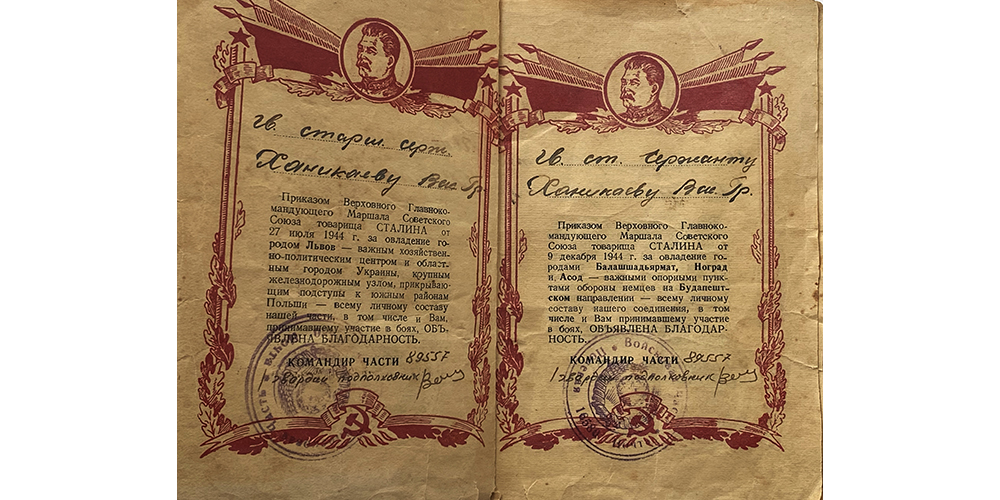 гв. старш. серж.
Ханикаеву Вас. Гр.
Приказом Верховного Главноко-
мандующего Маршала Советского
Союза товарища СТАЛИНА от
27 июля 1944 г. за овладение го-
родом Львов — важным хозяйствен-
но-политическим центром и област-
ным городом Украины, крупным
железнодорожным узлом, прикрываю-
щим подступы к южным районам
Польши — всему личному составу
нашей части, в том числе и Вам,
принимавшему участие в боях, ОБЪ-
ЯВЛЕНА БЛАГОДАРНОСТЬ.
КОМАНДИР ЧАСТИ 89557
гвардии подполковник
часть
гв. ст. сержанту
Ханикаеву Вас. Гр.
Приказом Верховного Главноко-
мандующего Маршала Советского
Союза товарища СТАЛИНА от
9 декабря 1944 г. за овладение го-
родами Балашшадьярмат, Ноград
и Асод — важными опорными пунк-
тами обороны немцев на Будапешт-
ском направлении — всему личному
составу нашего соединения, в том
числе и Вам принимавшему участие
в боях, ОБЪЯВЛЕНА БЛАГОДАР-
НОСТЬ.
КОМАНДИР ЧАСТИ 89557
гвардии подполковник